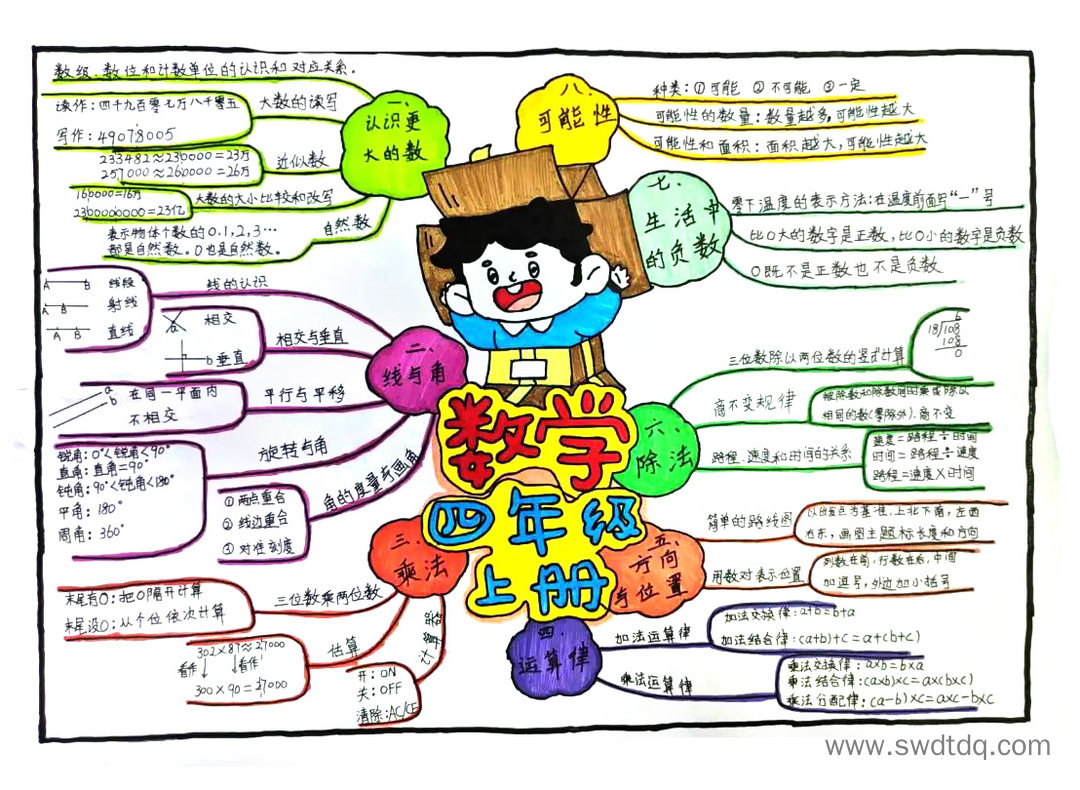 数学
四年级
上册
一、
认识更
大的数
数级、数位和计数单位的认识和对应关系。
大数的读写
读作：四十九百零七万八千零五
写作：49078005
近似数
233482≈230000=23万
257000≈260000=26万
大数的大小比较和改写
160000=16万
2300000000=23亿
自然数
表示物体个数的0.1,2,3…
都是自然数。0也是自然数。
二、
线与角
线的认识
A B 线段
A B 射线
A B 直线
相交与垂直
相交
a
b 垂直
平行与平移
a
b
在同一平面内
不相交
旋转与角
锐角：0°<锐角<90°
直角：直角=90°
钝角：90°<钝角<180°
平角：180°
周角：360°
角的度量与画角
①两点重合
②线边重合
③对准刻度
三、
乘法
三位数乘两位数
末尾有0：把0隔开计算
末尾没0：从个位依次计算
估算
302×87≈27000
看作 看作
300×90=27000
计算器
开：ON
关：OFF
清除：AC/CE
四、
运算律
加法运算律
加法交换律：a+b=b+a
加法结合律：(a+b)+c=a+(b+c)
乘法运算律
乘法交换律：a×b=b×a
乘法结合律：(a×b)×c=a×(b×c)
乘法分配律：(a-b)×c=a×c-b×c
五、
方向
与位置
简单的路线图
以出发点为基准，上北下南，左西
右东，画图主题标长度和方向
用数对表示位置
列数在前，行数在后，中间
加逗号，外边加小括号
六、
除法
三位数除以两位数的竖式计算
6
18/108
108
0
商不变规律
被除数和除数同时乘或除以
相同的数(零除外)，商不变
路程、速度和时间的关系
速度=路程÷时间
时间=路程÷速度
路程=速度×时间
七、
生活中
的负数
零下温度的表示方法：在温度前面写“－”号
比0大的数字是正数，比0小的数字是负数
0既不是正数也不是负数
八、
可能性
种类：①可能 ②不可能 ③一定
可能性的数量：数量越多，可能性越大
可能性和面积：面积越大，可能性越大
www.swdtdq.com